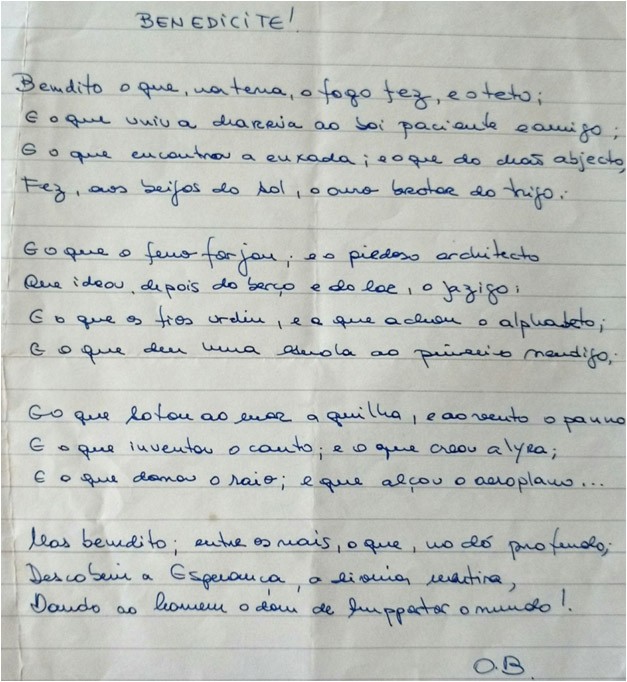 BENEDICITE!
Bemdito o que, na terra, o fogo fez, e o teto;
E o que uniu a charrua ao boi paciente e amigo;
E o que encontrou a enxada; e o que do chão abjecto,
Fez, aos beijos do sol, o ouro brotar do trigo;
E o que o ferro forjou; e o piedoso architecto
Que ideou, depois do berço e do lar, o jazigo;
E o que os fios urdiu, e o que achou o alphabeto;
E o que deu uma esmola ao primeiro mendigo;
E o que lotou ao mar a quilha, e ao vento o panno
E o que inventou o canto; e o que creou a lyra;
E o que domou o raio; e que alçou o aeroplano...
Mas bemdito; entre os mais, o que, no dó profundo,
Descobriu a Esperança, a divina mentira,
Dando ao homem o dom de supportar o mundo!
O.B.